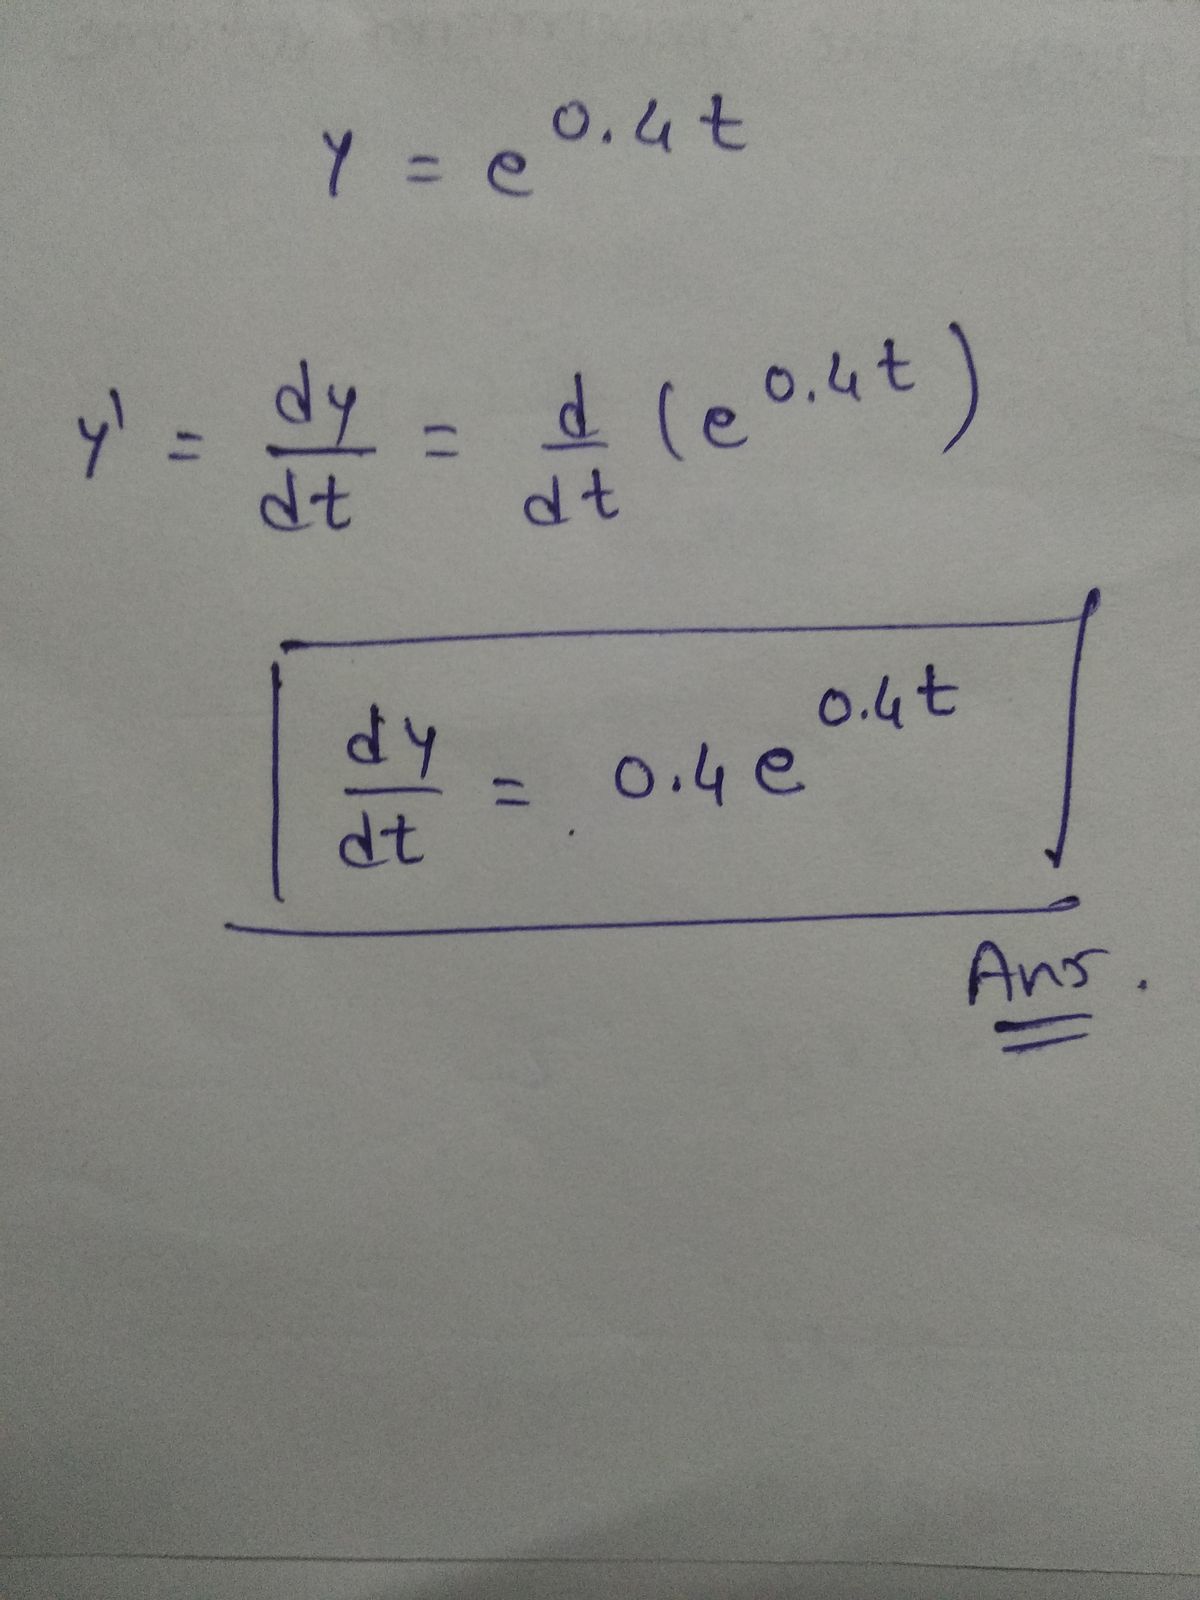 y = e^0.4t
y' = dy/dt = d/dt (e^0.4t)
dy/dt = 0.4 e^0.4t
Ans.